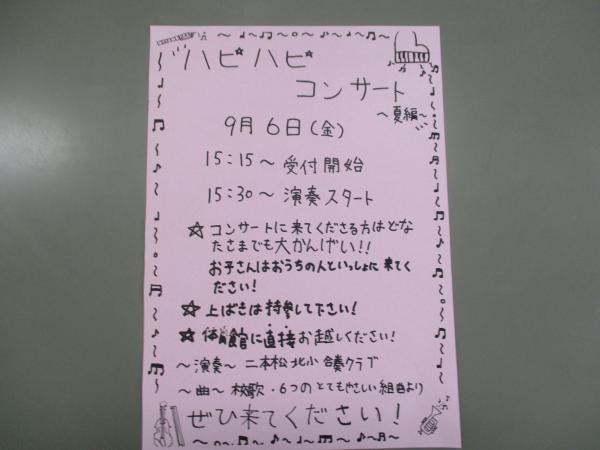 ハピハピ
コンサート
～夏編～
9月6日(金)
15:15～ 受付開始
15:30～ 演奏スタート
☆ コンサートに来てくださる方はどな
たさまでも大かんげい!!
お子さんはおうちの人といっしょに来てく
ださい!
☆ 上ばきは持参して下さい!
☆ 体育館に直接お越しください!
～演奏～ 二本松北小 合奏クラブ
～曲～ 校歌・6つのとてもやさしい組曲より
ぜひ来てください!